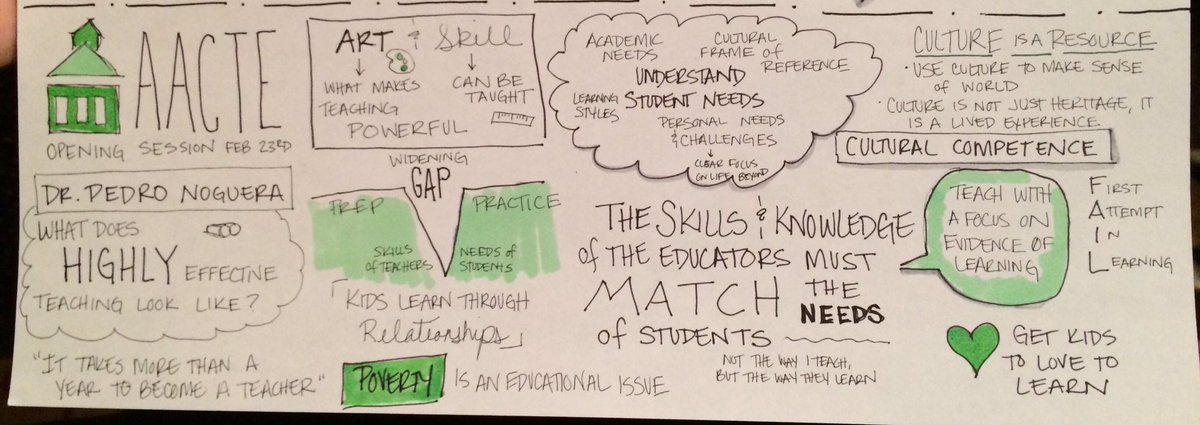 AACTE
OPENING SESSION FEB 23RD
DR. PEDRO NOGUERA
WHAT DOES
HIGHLY EFFECTIVE
TEACHING LOOK LIKE?
"IT TAKES MORE THAN A
YEAR TO BECOME A TEACHER"
ART & Skill
WHAT MAKES
TEACHING
POWERFUL
CAN BE
TAUGHT
WIDENING
GAP
PREP
SKILLS
OF TEACHERS
PRACTICE
NEEDS of
STUDENTS
"KIDS LEARN THROUGH
Relationships"
POVERTY IS AN EDUCATIONAL ISSUE
ACADEMIC
NEEDS
CULTURAL
FRAME of
REFERENCE
UNDERSTAND
STUDENT NEEDS
LEARNING
STYLES
PERSONAL NEEDS
& CHALLENGES
CLEAR FOCUS
ON LIFE BEYOND
THE SKILLS & KNOWLEDGE
OF THE EDUCATORS MUST
MATCH THE
NEEDS
of STUDENTS
NOT THE WAY I TEACH,
BUT THE WAY THEY LEARN
CULTURE IS A RESOURCE
· USE CULTURE TO MAKE SENSE
of WORLD
· CULTURE IS NOT JUST HERITAGE, IT
IS A LIVED EXPERIENCE
CULTURAL COMPETENCE
TEACH WITH
A FOCUS ON
EVIDENCE OF
LEARNING
FIRST
ATTEMPT
IN
LEARNING
GET KIDS
TO LOVE TO
LEARN